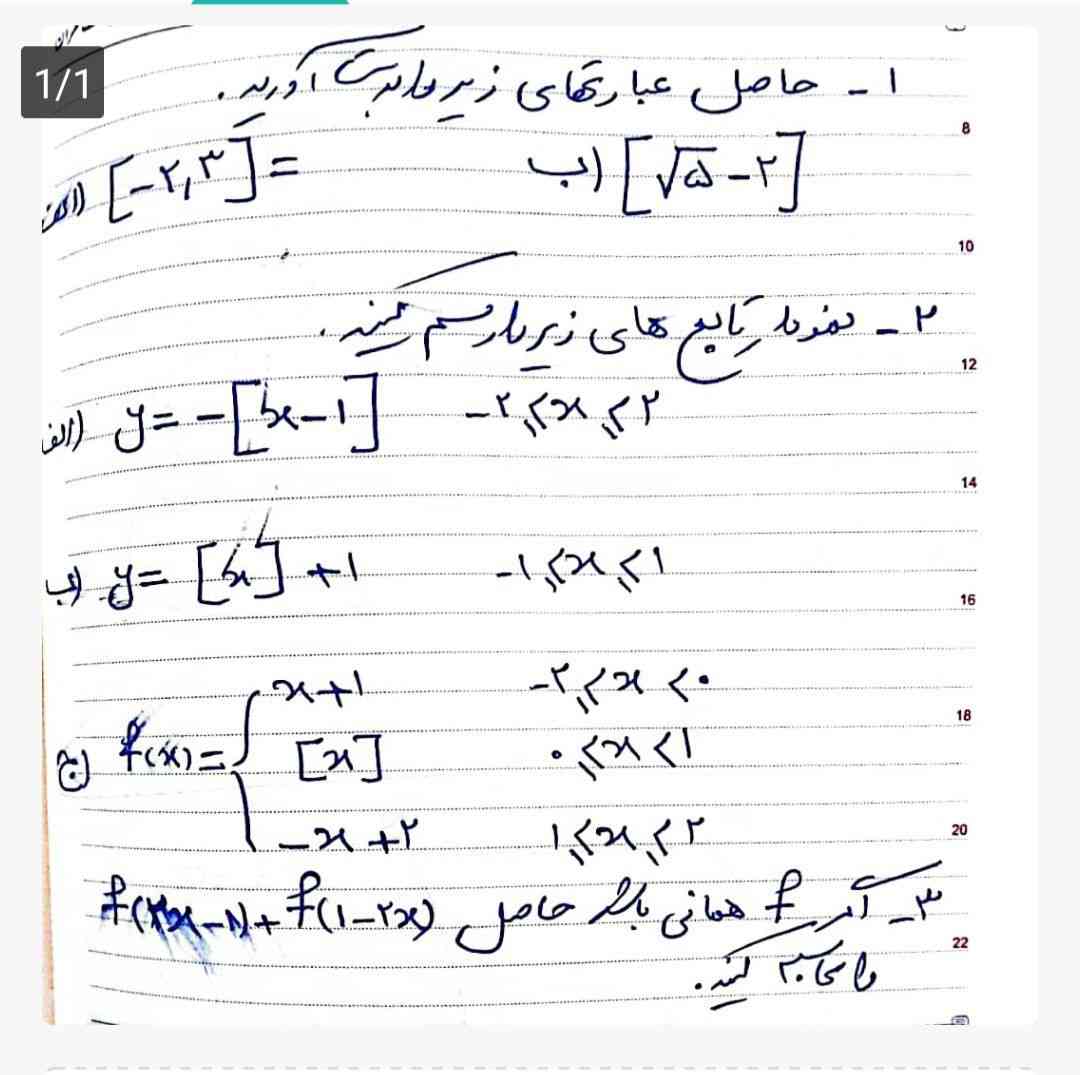 1/1
۱ - حاصل عبارتهای زیر را بدست آورید.
الف) [-۲,۳] = ب) [√۵ - ۲]
۲ - نمودار تابع های زیر را رسم کنید.
الف) y = -[x-۱] -۲ ≤ x ≤ ۲
ب) y = [x] + ۱ -۱ ≤ x ≤ ۱
ج) f(x) = { x+۱ -۲ ≤ x < ۰
[x] ۰ ≤ x < ۱
-x+۲ ۱ ≤ x ≤ ۲
۳ - اگر f همانی باشد حاصل f(۲x-۱) + f(۱-۲x)
را محاسبه کنید.
8
10
12
14
16
18
20
22